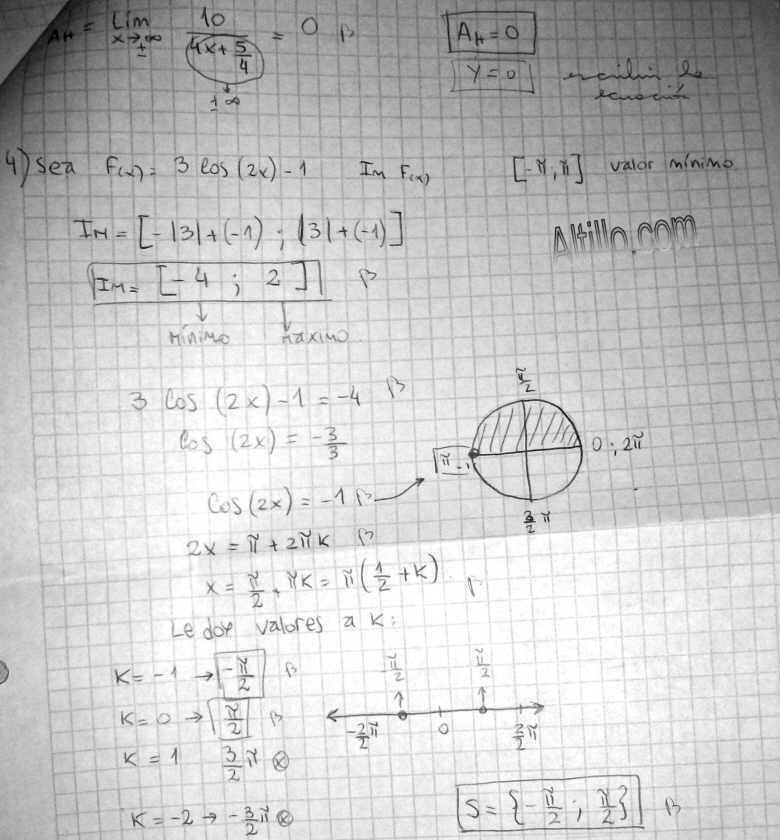 AH = Lím x→±∞ 10 / (4x + 5/4) = 0 AH = 0
± ∞ Y = 0 escribir la ecuación
4) Sea F(x) = 3 cos (2x) - 1 Im F(x) [-π, π] valor mínimo
Im = [-|3| + (-1) ; |3| + (-1)]
Altillo.com
Im = [-4 ; 2]
mínimo máximo
3 cos (2x) - 1 = -4
π/2
cos (2x) = -3/3
π -1 0 ; 2π
cos (2x) = -1
3/2 π
2x = π + 2πK
x = π/2 + πK = π(1/2 + K)
Le doy valores a K:
K = -1 → -π/2
-π/2 π/2
K = 0 → π/2
-2/2 π 0 2/2 π
K = 1 3/2 π ⊗
K = -2 → -3/2 π ⊗
S = {-π/2 ; π/2}